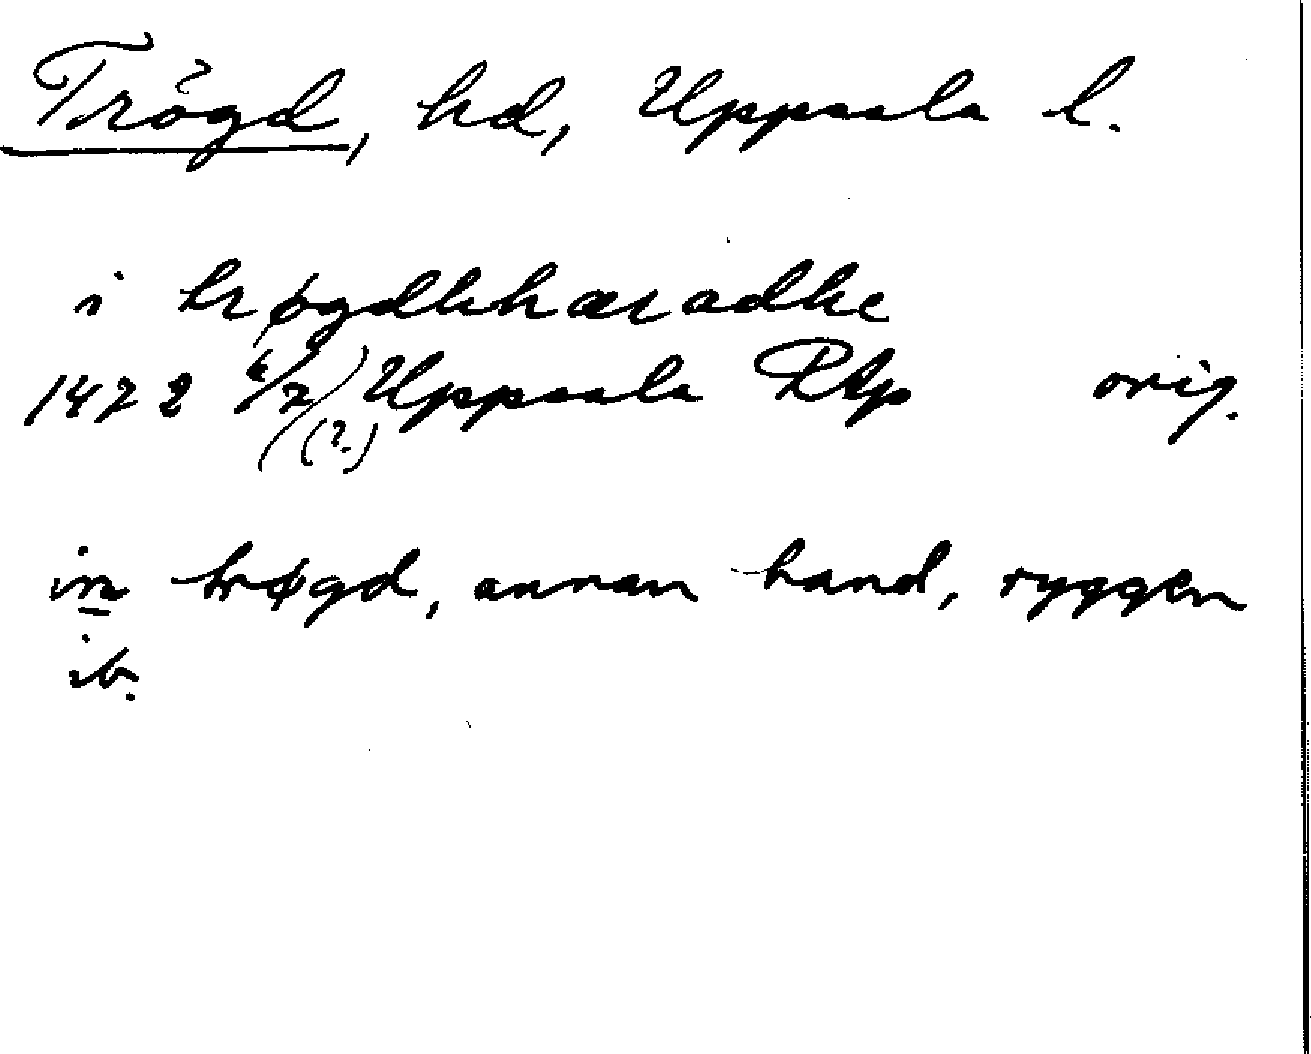 Trögd, hd, Uppsala l.
i trøgdhhæradhe
1472 6/7 (?) Uppsala RAp orig.
in trøgd, annan hand, ryggen
ib.